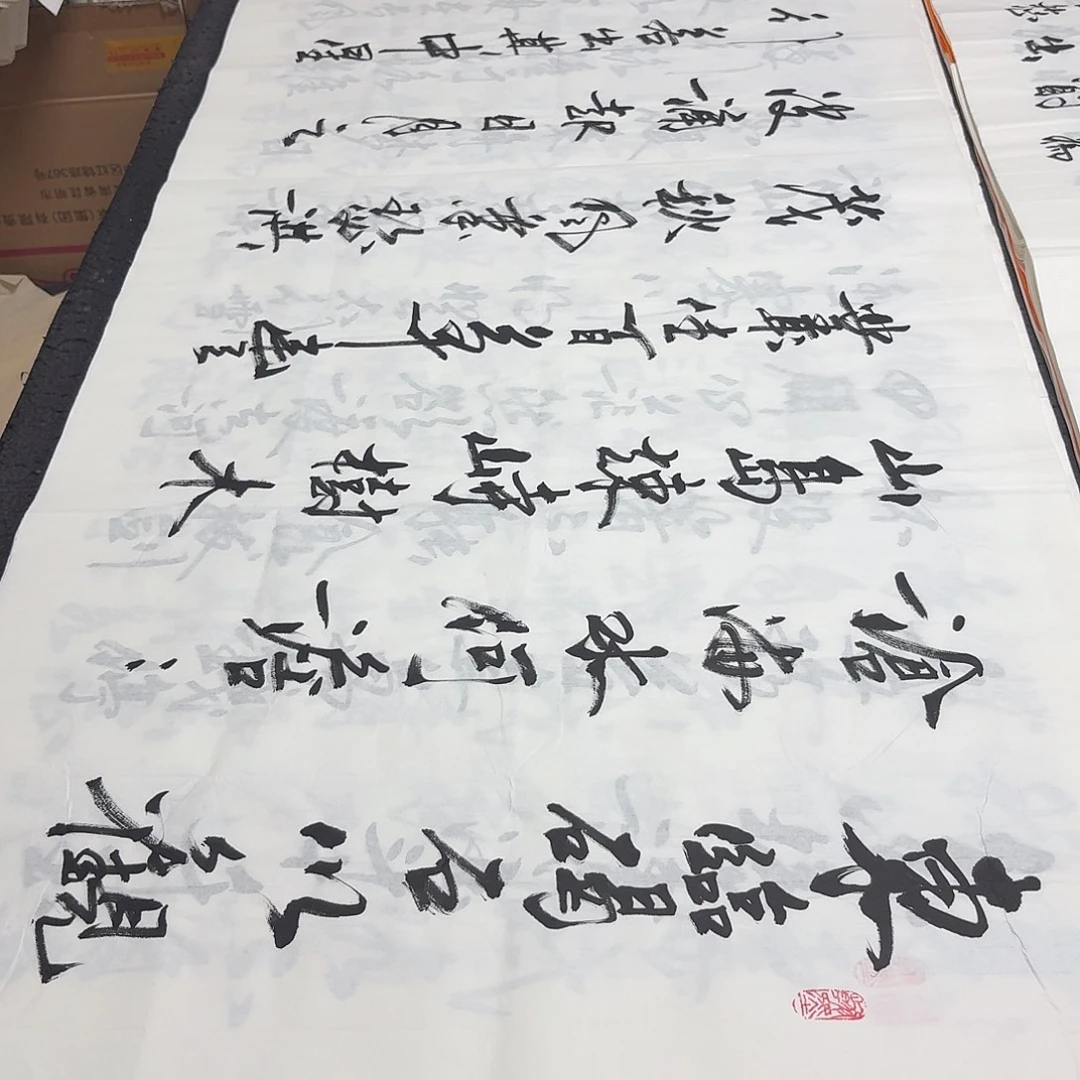 東臨碣石以觀
滄海水何澹〻
山島竦峙樹木
叢生百草豐
茂秋風蕭瑟洪
波涌起日月之
行若出其中星